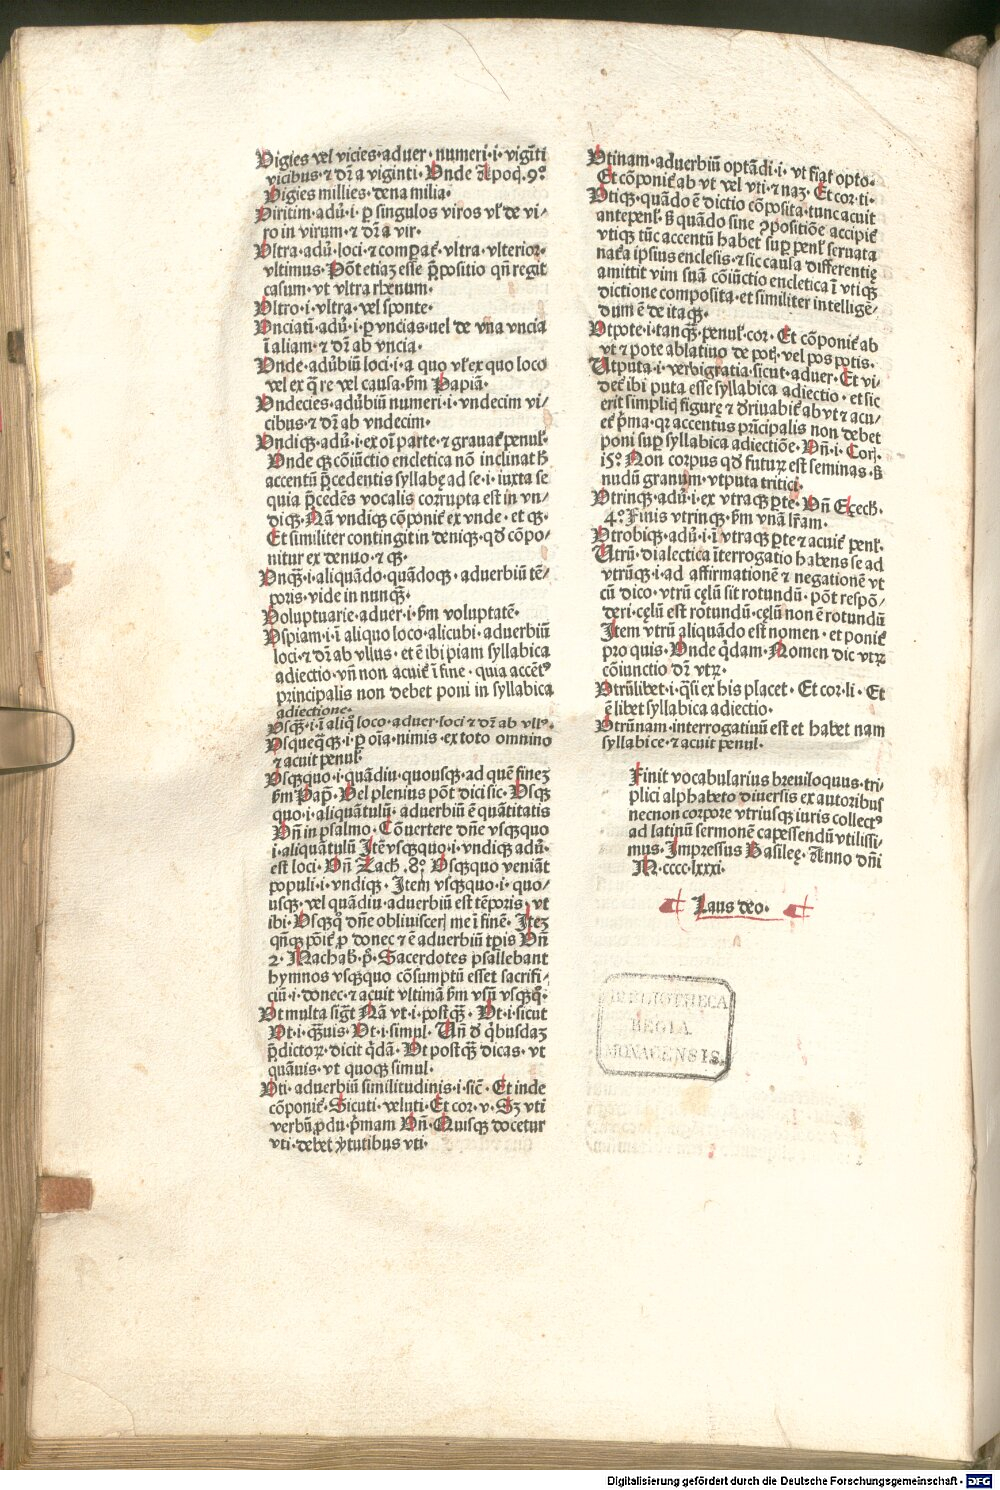 Vigies vel vicies·aduer·numeri·i·vigīti
vicibus·⁊ dr̄ a viginti·Vnde Apoc̄.9°
Vigies millies·dena milia·
Viritim·adū·i·ꝑ singulos viros vl̕ de vi⸗
ro in virum·⁊ dr̄ a vir·
Vltra·adū·loci·⁊ compat̕·vltra·vlterior·
vltimus·Pōt etiaz esse p̄positio qn̄ regit
casum·vt vltra rhenum·
Vltro·i·vltra·vel sponte·
Vnciati·adū·i·ꝑ vncias·uel de vna vncia
ī aliam·⁊ dr̄ ab vncia·
Vnde·adūbiū loci·i·a quo vl̕ ex quo loco
vel ex q̄ re vel causa·ẜm Papiā·
Vndecies·adūbiū numeri·i·vndecim vi⸗
cibus·⁊ dr̄ ab vndecim·
Vndiqꝫ·adū·i·ex oī parte·⁊ grauat̕ penul̕·
Vnde qꝫ cōiūctio encletica nō inclinat h̄
accentū p̄cedentis syllabę ad se·i·iuxta se
quia p̄cedēs vocalis corrupta est in vn⸗
diqꝫ·Nā vndiqꝫ cōponit̕ ex vnde·et qꝫ·
Et similiter contingit in deniqꝫ·qd̄ cōpo⸗
nitur ex denuo·⁊ qꝫ·
Vnqꝫ̄·i·aliquādo·quādoqꝫ·aduerbiū tē⸗
poris·vide in nunqꝫ̄·
Voluptuarie·aduer·i·ẜm voluptatē·
Vspiam·i·ī aliquo loco·alicubi·aduerbiū
loci·⁊ dr̄ ab vllus·et ē ibi piam syllabica
adiectio·vn̄ non acuit̕ ī fine·quia accēt⁹
principalis non debet poni in syllabica
adiectione·
Vsqꝫ̄·i·ī aliq̄ loco·aduer·loci ⁊ dr̄ ab vll⁹·
Vsquequaqꝫ·i·ꝑ oīa·nimis·ex toto omnino
⁊ acuit penul̕·
Vsqꝫquo·i·quādiu·quousqꝫ·ad quē finez
ẜm Pap̄·Vel plenius pōt dici sic·Vsqꝫ
quo·i·aliquātulū·aduerbiū ē quātitatis
Vn̄ in psalmo·Cōuertere dn̄e vsqꝫquo
·i·aliquātulū Itē vsqꝫquo·i·vndiqꝫ adū·
est loci·Vn̄ Zach̄.8° Vsqꝫquo veniāt
populi·i·vndiqꝫ·Item vsqꝫquo·i·quo⸗
usqꝫ·vel quādiu·aduerbiū est tēporis·vt
ibi·Vsqꝫq̊ dn̄e obliuisceri me ī finē·Itez
qn̄qꝫ pōit̕ ꝓ donec ⁊ ē aduerbiū tꝑis Vn̄
2·Machab̄·p̊·Sacerdotes psallebant
hymnos vsqꝫquo cōsumptū esset sacrifi⸗
ciū·i·donec·⁊ acuit vltimā ẜm vsū vsqꝫq̊·
Vt multa sig̅t Nā vt·i·postqꝫ̄·Vt·i·sicut
Vt·i·qꝫ̄uis·Vt·i·simul·Vn̄ ꝺ̕ q̇busdaz
p̄dictoꝝ·dicit q̇dā·Vt postqꝫ̄ dicas·vt
quāuis·vt quoqꝫ simul·
Vti·aduerbiū similitudinis·i·sic̄·Et inde
cōponit̕·Sicuti·veluti·Et cor·v·Sꝫ vti
verbū ꝓdu·p̄mam Vn̄·Quisqꝫ docetur
vti·debet ꝟtutibus vti·
Vtinam·aduerbiū optādi·i·vt fiat opto·
Et cōponit̕ ab vt vel vti·⁊ naz·Et cor·ti·
Vtiqꝫ·quādo ē dictio cōposita·tunc acuit
antepenl̕·ẜꝫ quādo sine ꝯpositiōe accipit̕
vtiqꝫ tūc accentū habet suꝑ penl̕ seruata
nata ipsius enclesis·⁊ sic causa differentię
amittit vim suā cōiūctio encletica ī vtiqꝫ
dictione composita·et similiter intelligē⸗
dum ē de itaqꝫ·
Vtpote·i·tanqꝫ̄·penul̕·cor·Et cōponit̕ ab
vt ⁊ pote ablatiuo de potꝭ·vel pos potis·
Vtputa·i·verbigratia·sicut·aduer·Et vi⸗
det̕ ibi puta esse syllabica adiectio·et sic
erit simplicꝭ figurę ⁊ ꝺ̕riuabit̕ ab vt ⁊ acu⸗
et̕ p̄ma·qꝛ accentus pricipalis non debet
poni suꝑ syllabica adiectiōe·Vn̄·i·Corꝭ·
15° Non corpus qd̄ futuꝝ est seminas·ẜꝫ
nudū granum·vtputa tritici·
Vtrinqꝫ·adū·i·ex vtraqꝫ ꝑte·Vn̄ Ezech̄·
4° Finis vtrinqꝫ·ẜm vnā lr̄am·
Vtrobiqꝫ·adū·i·ī vtraqꝫ ꝑte ⁊ acuit̕ penl̕·
Vtrū·dialectica īterrogatio habens se ad
vtrūqꝫ·i·ad affirmationē ⁊ negationē vt
cū dico·vtrū cęlū sit rotundū·pōt respō⸗
deri·cęlū est rotundū·cęlū non ē rotundū
Item vtrū aliquādo est nomen·et ponit̕
pro quis·Vnde q̇dam·Nomen dic vtꝝ
cōiunctio dr̄ vtꝝ·
Vtrūlibet·i·q̄si ex his placet·Et cor·li·Et
ē libet syllabica adiectio·
Vtrūnam·interrogatiuū est et habet nam
syllabice·⁊ acuit penul·
Finit vocabularius breuiloquus·tri⸗
plici alphabeto diuersis ex autoribus
necnon corpore vtriusqꝫ iuris collect⁹
ad latinū sermonē capessendū vtilissi⸗
mus·Impressus Basileę·Anno dn̄i
M·cccc·lxxxi·
Laus deo·
BIBLIOTHECA
REGIA
MONACENSIS.
Digitalisierung gefördert durch die Deutsche Forschungsgemeinschaft - DFG